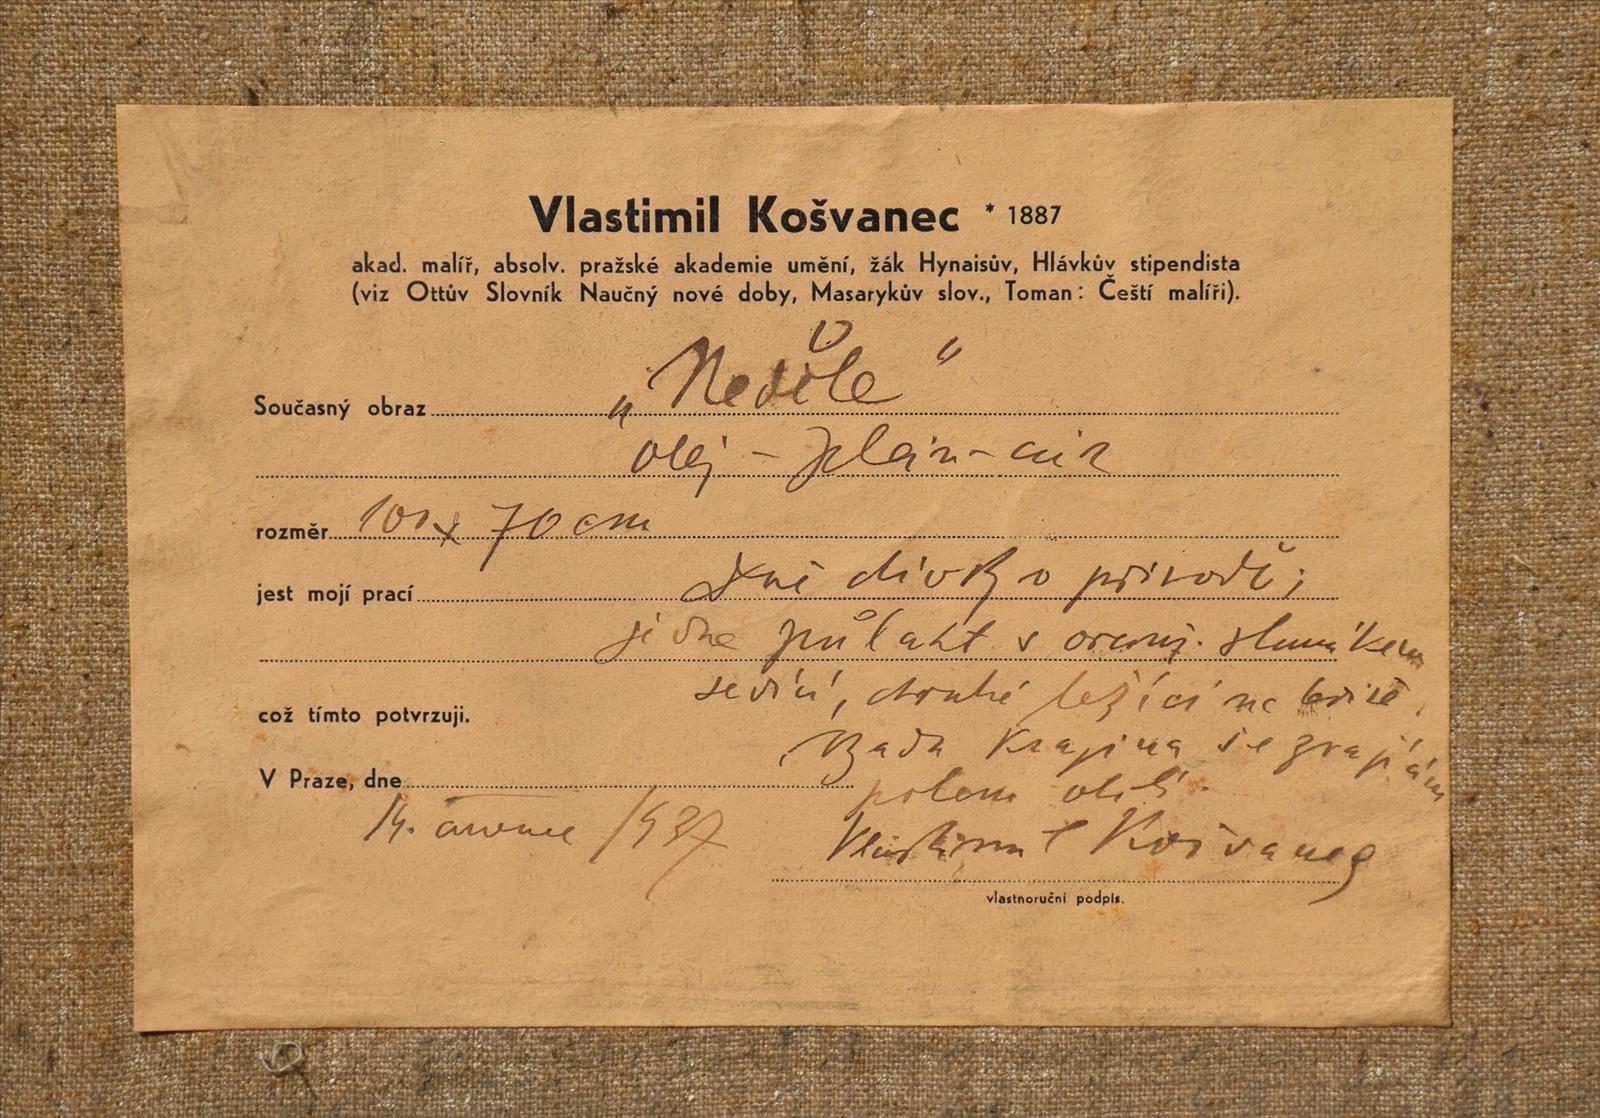 Vlastimil Košvanec * 1887
akad. malíř, absolv. pražské akademie umění, žák Hynaisův, Hlávkův stipendista
(viz Ottův Slovník Naučný nové doby, Masarykův slov., Toman: Čeští malíři).
Současný obraz „Neděle“
olej – plein-air
rozměr 100 x 70 cm
jest mojí prací dvě dívky v přírodě;
jedna půlakt s oranž. slunníkem
sedící, druhá ležící na
což tímto potvrzuji.
krajina se
V Praze, dne
polem
14. 1937 Vlastimil Košvanec
vlastnoruční podpis.